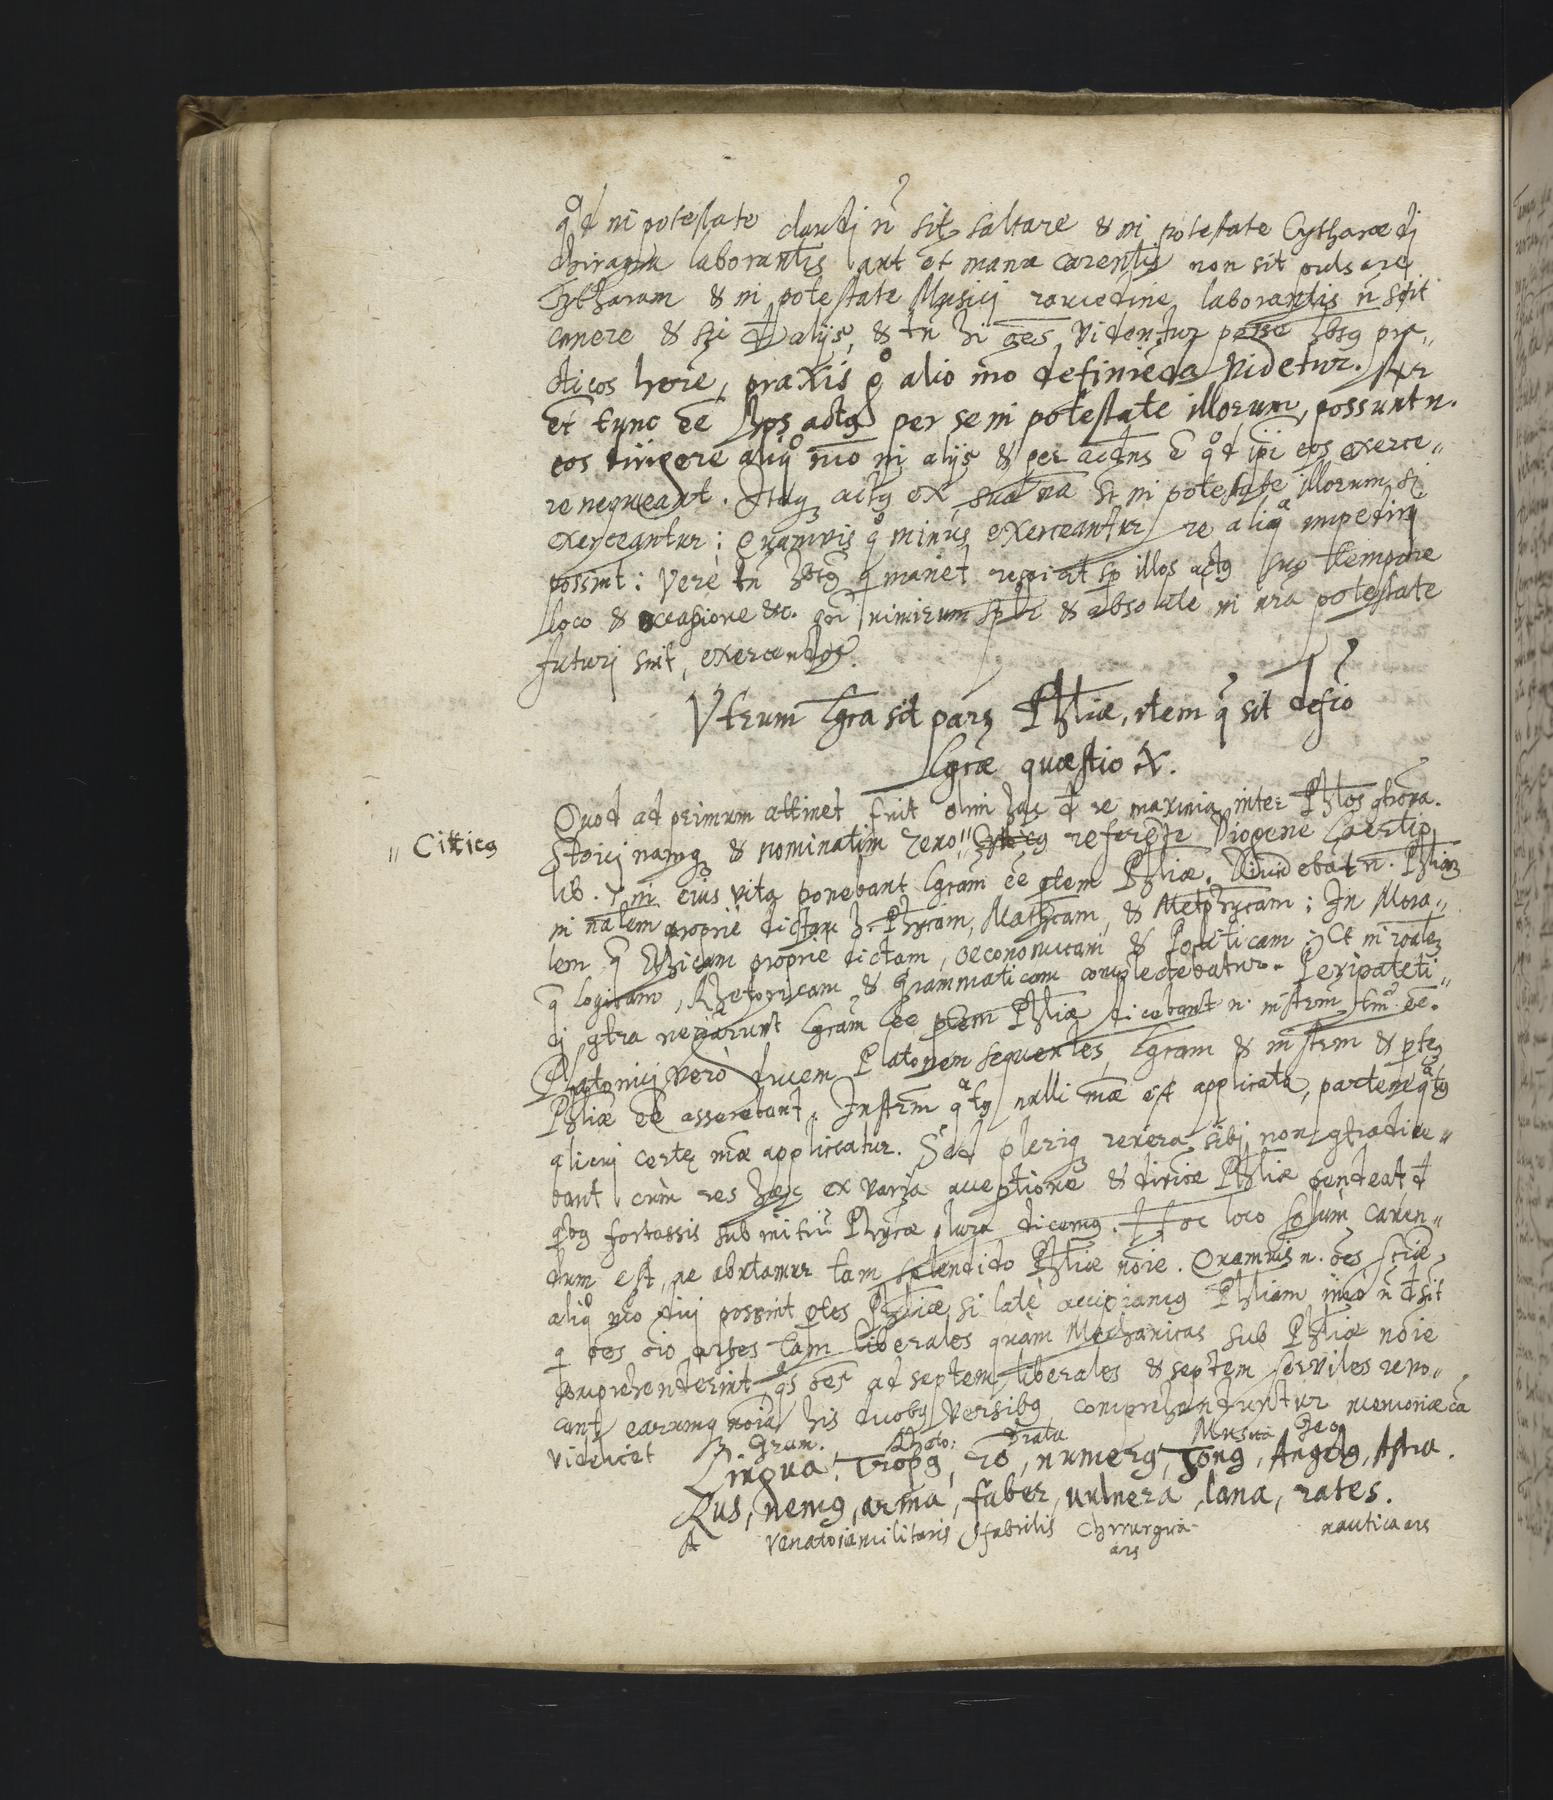 qod in potestate claudi ñ sit saltare & in potestate Cytharædi
chiragra laborantis aut et manu carentis non sit pulsare
Cytharam & in potestate Musici raucedine laborantis ñ sit
canere & sic de alijs, & tñ hi oẽs videntur posse hbtus pra„
cticos hẽre, praxis go alio mõ definiẽda videtur.
et tunc ẽẽ hos actus per se in potestate illorum, possunt n.
eos dirigere aliqo mõ in alijs & per accdns ẽ qod ipi eos exerce„
re nequeant. Itaq actus ex sua nã st in potestate illorum si
exerceantur; Quamvis qo minus exerceantur re aliqa impediri
possint: Verè tñ hbtus q manet respicit sp illos actus suo tempore
loco & occasione &c. nimirum splr & absolutè in nrã potestate
futuri sint, exercendos.
Vtrum Lgca sit pars Phliæ, item q sit defĩo
Lgcæ quæstio X.
Quod ad primum attinet fuit olim hac d re maxima inter Phlos gtrova.
„ Citicus
Stoici namq & nominatim Zeno „ referẽte Diogene Laertio
lib. 7 in eius vita ponebant Lgcam ẽẽ ptem Phliæ. Diuidebãt n. Phliam
in nãlem propriè dictam h. Phycam, Mathcam, & Metphycam; In Mora„
lem q Ethicam propriè dictam, Oeconomicam & Politicam; Et in rõalem
q Logicam, Rhetoricam & Grammaticam complectebatur. Peripateti„
ci gtra negãrunt Lgcam ẽẽ ptem Phliæ dicebant n. instrm̃ tm̃ ẽẽ.
Platonici verò ducem Platonem sequentes, Lgcam & instrm & ptem
Phliæ ẽẽ asserebant. Instrm̃ qatus nulli mãe est applicata, partem qatus
alicui certæ mãe applicatur. Sed pleriq reuera sibi non gtradice„
bant cum res hæc ex varia acceptione & diuiõe Phliæ pendeat, d
qbus fortassis sub initiũ Phycæ plura dicemus. Hoc loco solùm cauen„
dum est, ne abutamur tam splendido Phliæ nõie. Quamuis n. õẽs sciæ,
aliqo mõ dici possint ptes Phliæ si latè accipiamus Phliam imò ñ dsĩt
q õẽs õĩo artes tam liberales quàm Mechanicas sub Phliæ nõie
comprehenderint qs õẽs ad septem liberales & septem serviles reuo„
cant earumq nõĩa his duobus versibus comprehenduntur memoriæ cã
videlicet
Gram. Rheto: Musica Geo
Lingua, Tropus, rõ, numerus, Tonus, Angelus, Astra.
Rus, nemus, arma, faber, vulnera, lana, rates.
A Venatoria militaris fabrilis Chirurgica nautica ars
ars